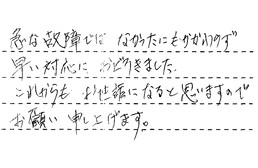 急な故障ではなかったにもかかわらず
早い対応におどろきました。
これからもお世話になると思いますので
お願い申し上げます。